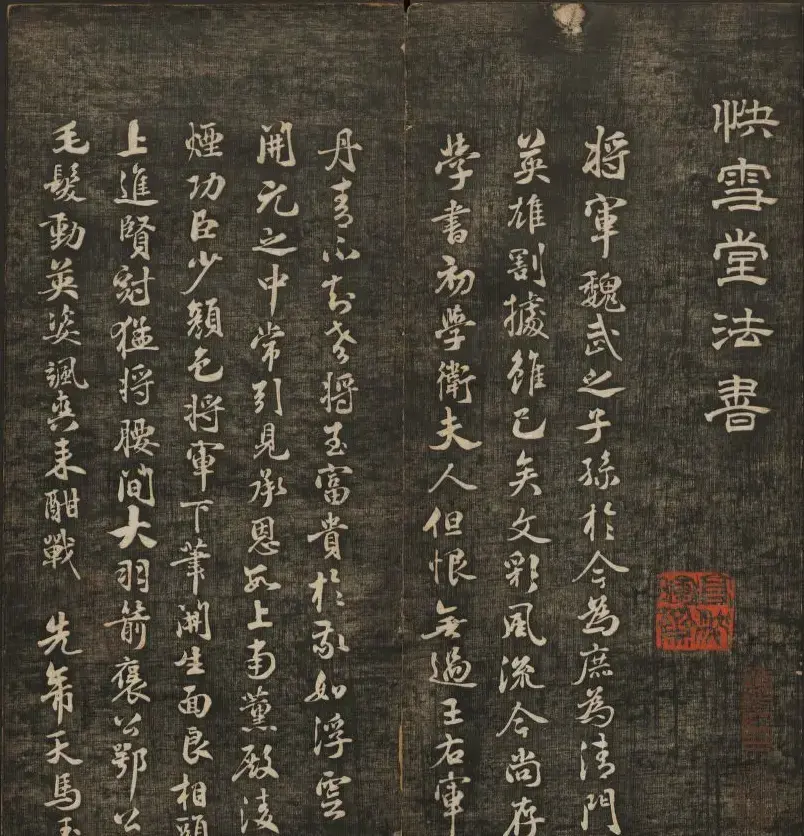 快雪堂法書
将軍魏武之子孫於今為庶為清門
英雄割據雖已矣文彩風流今尚存
學書初學衛夫人但恨無過王右軍
丹青不知老将至富貴於我如浮雲
開元之中常引見承恩數上南薰殿凌
煙功臣少顏色将軍下筆開生面良相頭
上進賢冠猛将腰間大羽箭褒公鄂公
毛髮動英姿颯爽来酣戰 先帝天馬玉